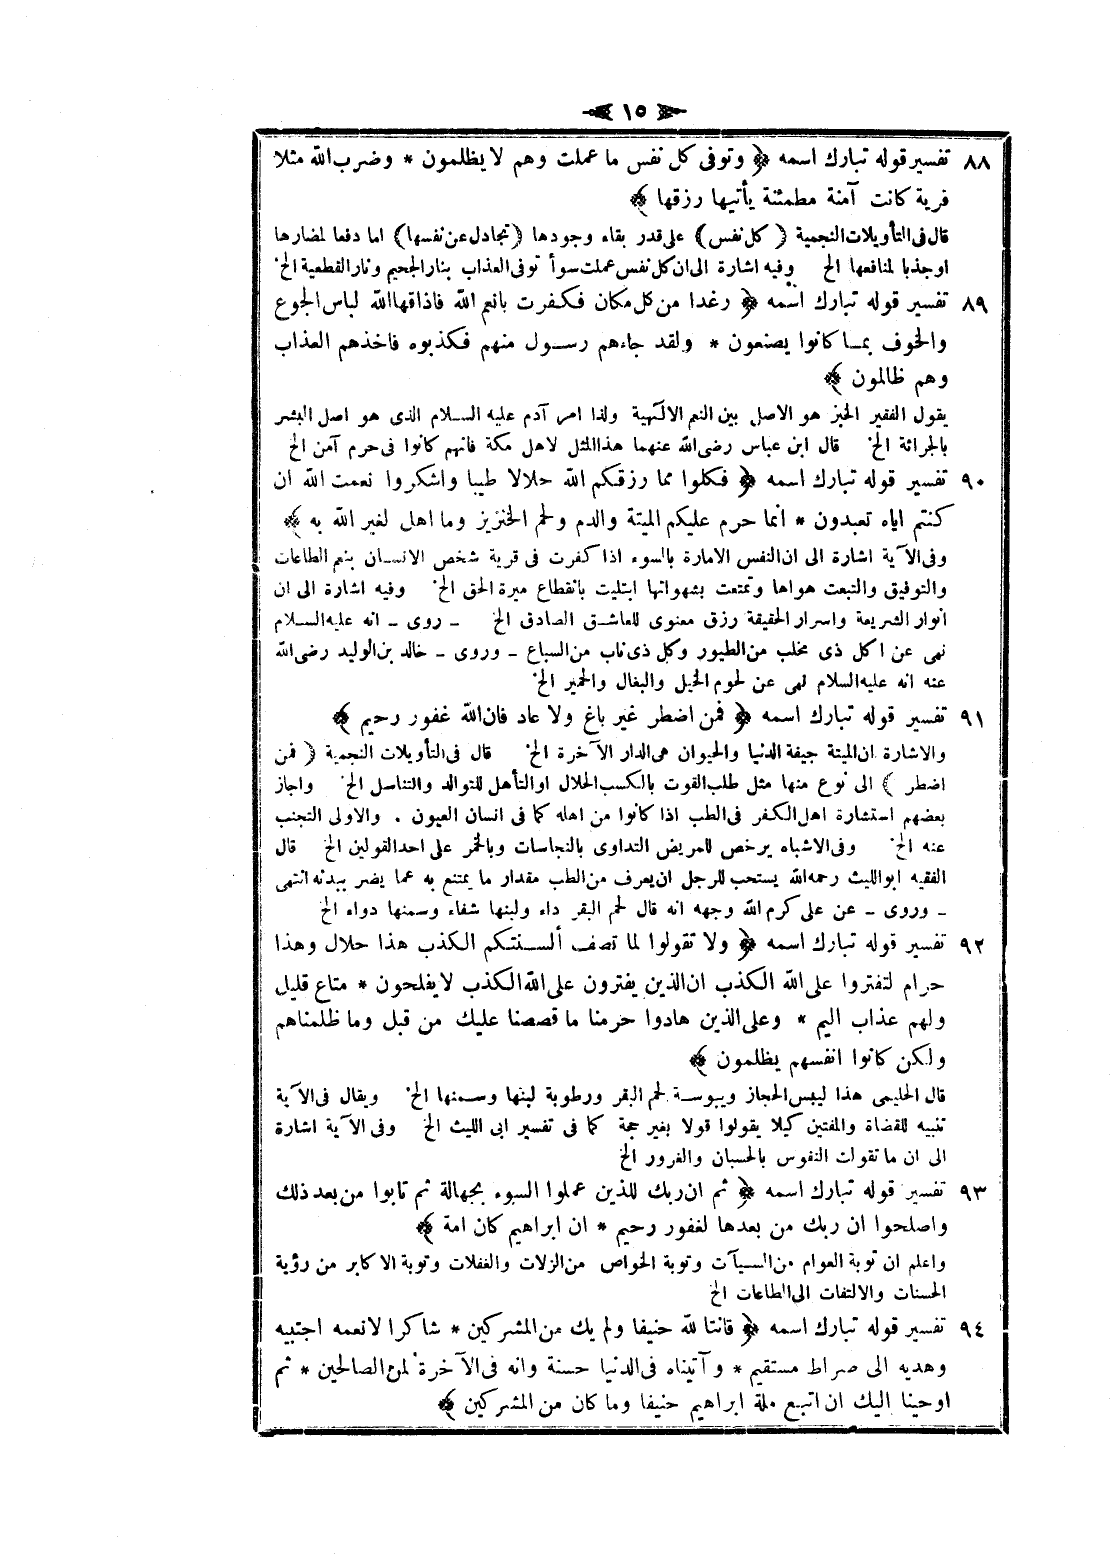 ١٥
٨٨ تفسير قوله تبارك اسمه ﴿ وتوفى كل نفس ما عملت وهم لا يظلمون * وضرب الله مثلا
قرية كانت آمنة مطمئنة يأتيها رزقها ﴾
قال فى التأويلات النجمية ( كل نفس ) على قدر بقاء وجودها ( تجادل عن نفسها ) اما دفعا لمضارها
اوجذبا لمنافعها الخ وفيه اشارة الى ان كل نفس عملت سوأ توفى العذاب بنار الجحيم ونار القطعية الخ
٨٩ تفسير قوله تبارك اسمه ﴿ رغدا من كل مكان فكفرت بانعم الله فاذاقها الله لباس الجوع
والخوف بما كانوا يصنعون * ولقد جاءهم رسول منهم فكذبوه فاخذهم العذاب
وهم ظالمون ﴾
يقول الفقير الخبز هو الاصل بين النعم الالٓهية ولذا امر آدم عليه السلام الذى هو اصل البشر
بالحراثة الخ قال ابن عباس رضى الله عنهما هذا المثل لاهل مكة فانهم كانوا فى حرم آمن الخ
٩٠ تفسير قوله تبارك اسمه ﴿ فكلوا مما رزقكم الله حلالا طيبا واشكروا نعمت الله ان
كنتم اياه تعبدون * انما حرم عليكم الميتة والدم ولحم الخنزيز وما اهل لغير الله به ﴾
وفى الآية اشارة الى ان النفس الامارة بالسوء اذا كفرت فى قرية شخص الانسان بنعم الطاعات
والتوفيق والتبعت هواها وتمتعت بشهواتها ابتليت بانقطاع ميرة الحق الخ وفيه اشارة الى ان
انوار الشريعة واسرار الحقيقة رزق معنوى للعاشق الصادق الخ ـ روى ـ انه عليه السلام
نهى عن اكل ذى مخلب من الطيور وكل ذى ناب من السباع ـ وروى ـ خالد بن الوليد رضى الله
عنه انه عليه السلام نهى عن لحوم الخيل والبغال والحمير الخ
٩١ تفسير قوله تبارك اسمه ﴿ فمن اضطر غير باغ ولا عاد فان الله غفور رحيم ﴾
والاشارة ان الميتة جيفة الدنيا والحيوان هى الدار الآخرة الخ قال فى التأويلات النجمية ( فمن
اضطر ) الى نوع منها مثل طلب القوت بالكسب الحلال او التأهل للتوالد والتناسل الخ واجاز
بعضهم استشارة اهل الكفر فى الطب اذا كانوا من اهله كما فى انسان العيون . والاولى التجنب
عنه الخ وفى الاشباه يرخص للمريض التداوى بالنجاسات وبالخمر على احد القولين الخ قال
الفقيه ابو الليث رحمه الله يستحب للرجل ان يعرف من الطب مقدار ما يمتنع به عما يضر ببدنه انتهى
ـ وروى ـ عن على كرم الله وجهه انه قال لحم البقر داء ولبنها شفاء وسمنها دواء الخ
٩٢ تفسير قوله تبارك اسمه ﴿ ولا تقولوا لما تصف ألسنتكم الكذب هذا حلال وهذا
حرام لتفتروا على الله الكذب ان الذين يفترون على الله الكذب لا يفلحون * متاع قليل
ولهم عذاب اليم * وعلى الذين هادوا حرمنا ما قصصنا عليك من قبل وما ظلمناهم
ولكن كانوا انفسهم يظلمون ﴾
قال الحليمى هذا ليبس الحجاز ويبوسة لحم البقر ورطوبة لبنها وسمنها الخ ويقال فى الآية
تنبيه للقضاة والمفتين كيلا يقولوا قولا بغير حجة كما فى تفسير ابى الليث الخ وفى الآية اشارة
الى ان ما تقولت النفوس بالحسبان والغرور الخ
٩٣ تفسير قوله تبارك اسمه ﴿ ثم ان ربك للذين عملوا السوء بجهالة ثم تابوا من بعد ذلك
واصلحوا ان ربك من بعدها لغفور رحيم * ان ابراهيم كان امة ﴾
واعلم ان توبة العوام من السيآت وتوبة الخواص من الزلات والغفلات وتوبة الاكابر من رؤية
الحسنات والالتفات الى الطاعات الخ
٩٤ تفسير قوله تبارك اسمه ﴿ قانتا لله حنيفا ولم يك من المشركين * شاكرا لانعمه اجتبيه
وهديه الى صراط مستقيم * وآتيناه فى الدنيا حسنة وانه فى الآخرة لمن الصالحين * ثم
اوحينا اليك ان اتبع ملة ابراهيم حنيفا وما كان من المشركين ﴾